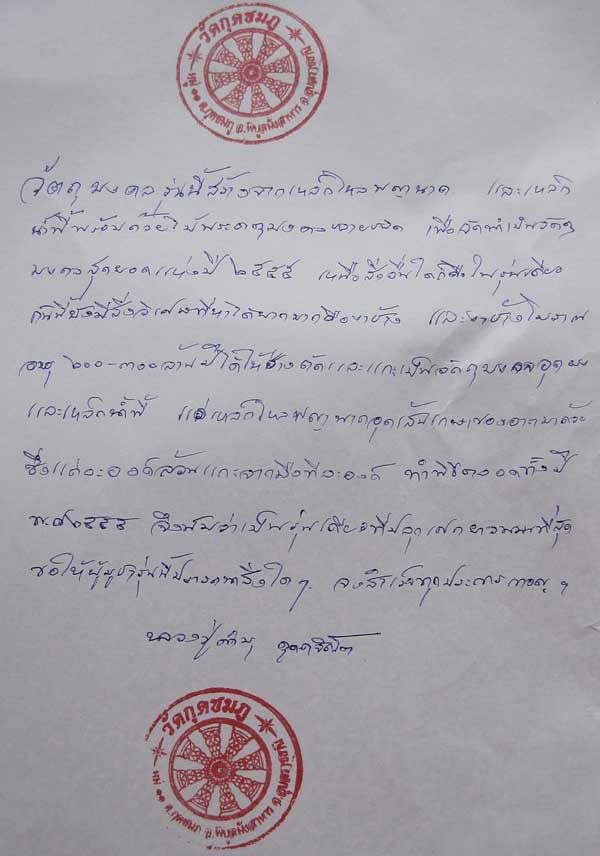 วัดกุดชมภู
หมู่ ๑๑ ต.กุดชมภู อ.พิบูลมังสาหาร จ.อุบลราชธานี
วัตถุมงคลรุ่นนี้สร้างจากเหล็กไหลพญานาค และเหล็ก
น้ำพี้พร้อมด้วยไม้พระธาตุมงคลหลายชนิด เพื่อจัดทำเป็นวัตถุ
มงคลสุดยอดแห่งปี ๒๕๕๕ เหนือสิ่งอื่นใดก็คือในรุ่นเดียว
กันนี้ยังมีสิ่งวิเศษที่หาได้ยากมากคืองาช้าง และงาช้างโบราณ
อายุ ๒๐๐-๓๐๐ ล้านปี ได้ให้ช่างตัดและแกะเป็นวัตถุมงคลอุดผง
และเหล็กน้ำพี้ แร่เหล็กไหลพญานาคอุดเส้นเกษาของอาตมาด้วย
ซึ่งแต่ละองค์ล้วนแกะจากมือทีละองค์ ทำพิธีตลอดทั้งปี
พ.ศ.๒๕๕๕ จึงนับว่าเป็นรุ่นเดียวที่ปลุกเสกยาวนานที่สุด
ขอให้ผู้บูชารุ่นนี้ปรารถนาสิ่งใดๆ จงสำเร็จทุกประการเทอญ ฯ
หลวงปู่คำบุ คุตฺตจิตฺโต
วัดกุดชมภู
หมู่ ๑๑ ต.กุดชมภู อ.พิบูลมังสาหาร จ.อุบลราชธานี